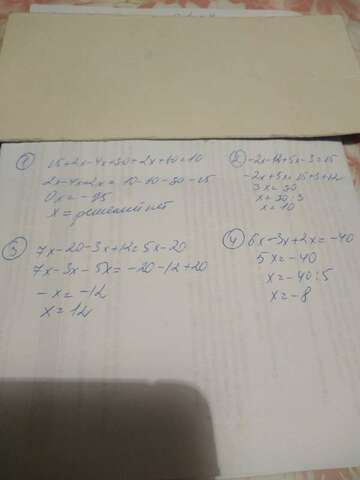 ①
15+2x-4x+20+2x+60=10
2x-4x+2x = 10-60-20-15
0x = -85
x = решений нет
② -2x-12+5x-3=15
-2x+5x = 15+3+12
3x = 30
x = 30:3
x = 10
③ 7x-20-3x+12=5x-20
7x-3x-5x = -20-12+20
-x = -12
x = 12
④ 6x-3x+2x = -40
5x = -40
x = -40:5
x = -8